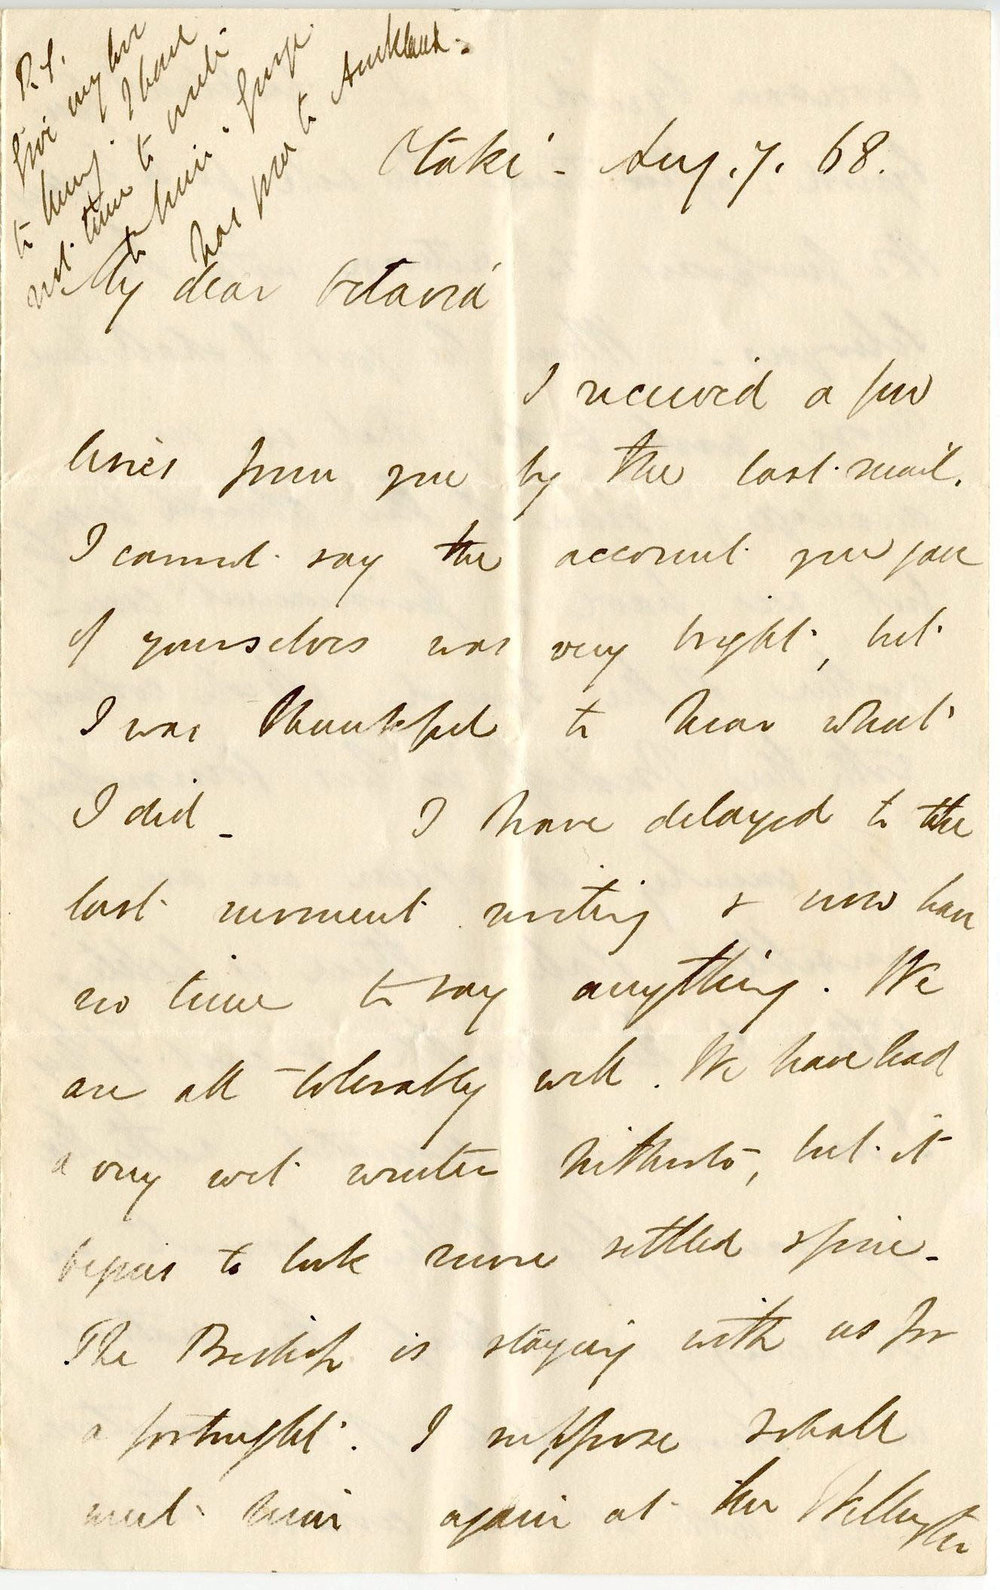 P.S.
Give my love
to Henry. I have
not time to write
to him. George
has gone to Auckland.
Otaki - Aug. 7. 68.
My dear Octavia
I received a few
lines from you by the last mail.
I cannot say the account you gave
of yourselves was very bright, but
I was thankful to hear what
I did _ I have delayed to the
last moment writing & now have
no time to say anything. We
are all tolerably well. We have had
a very wet winter hitherto, but it
begins to look more settled & fine -
The Bishop is staying with us for
a fortnight. I suppose I shall
meet him again at the Wellington